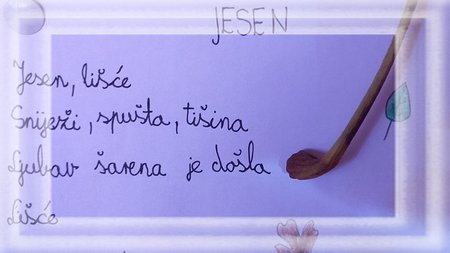 JESEN
Jesen, lišće
Sniježi, spušta, tišina
Ljubav šarena je došla
Lišće